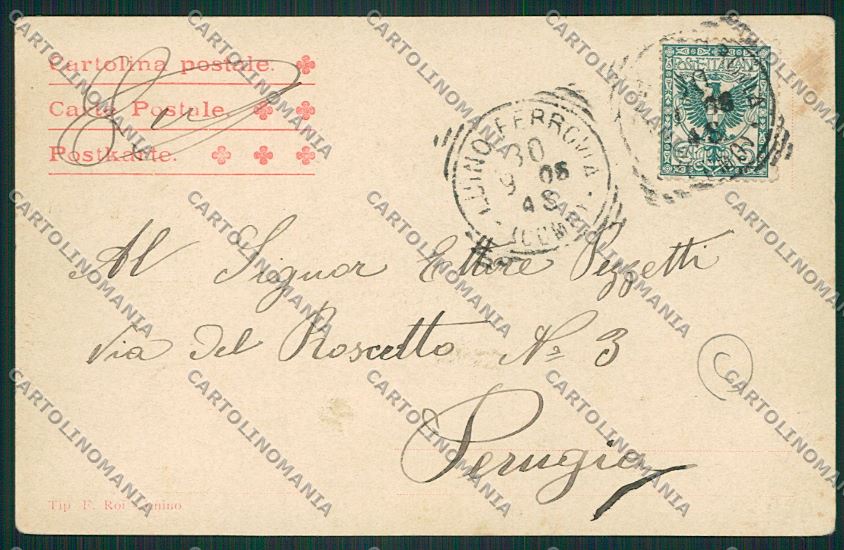 Cartolina postale.
Carte Postale.
Postkarte.
POSTE ITALIANE
LUINO FERROVIA
30
9 05
4 S
(COMO)
Al Signor Ettore Pezzetti
Via del Roscetto No 3
Perugia
Tip. F. Roi Luino
CARTOLINOMANIA